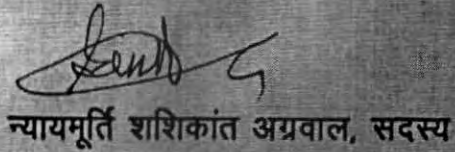 न्यायमूर्ति शशिकांत अग्रवाल, सदस्य